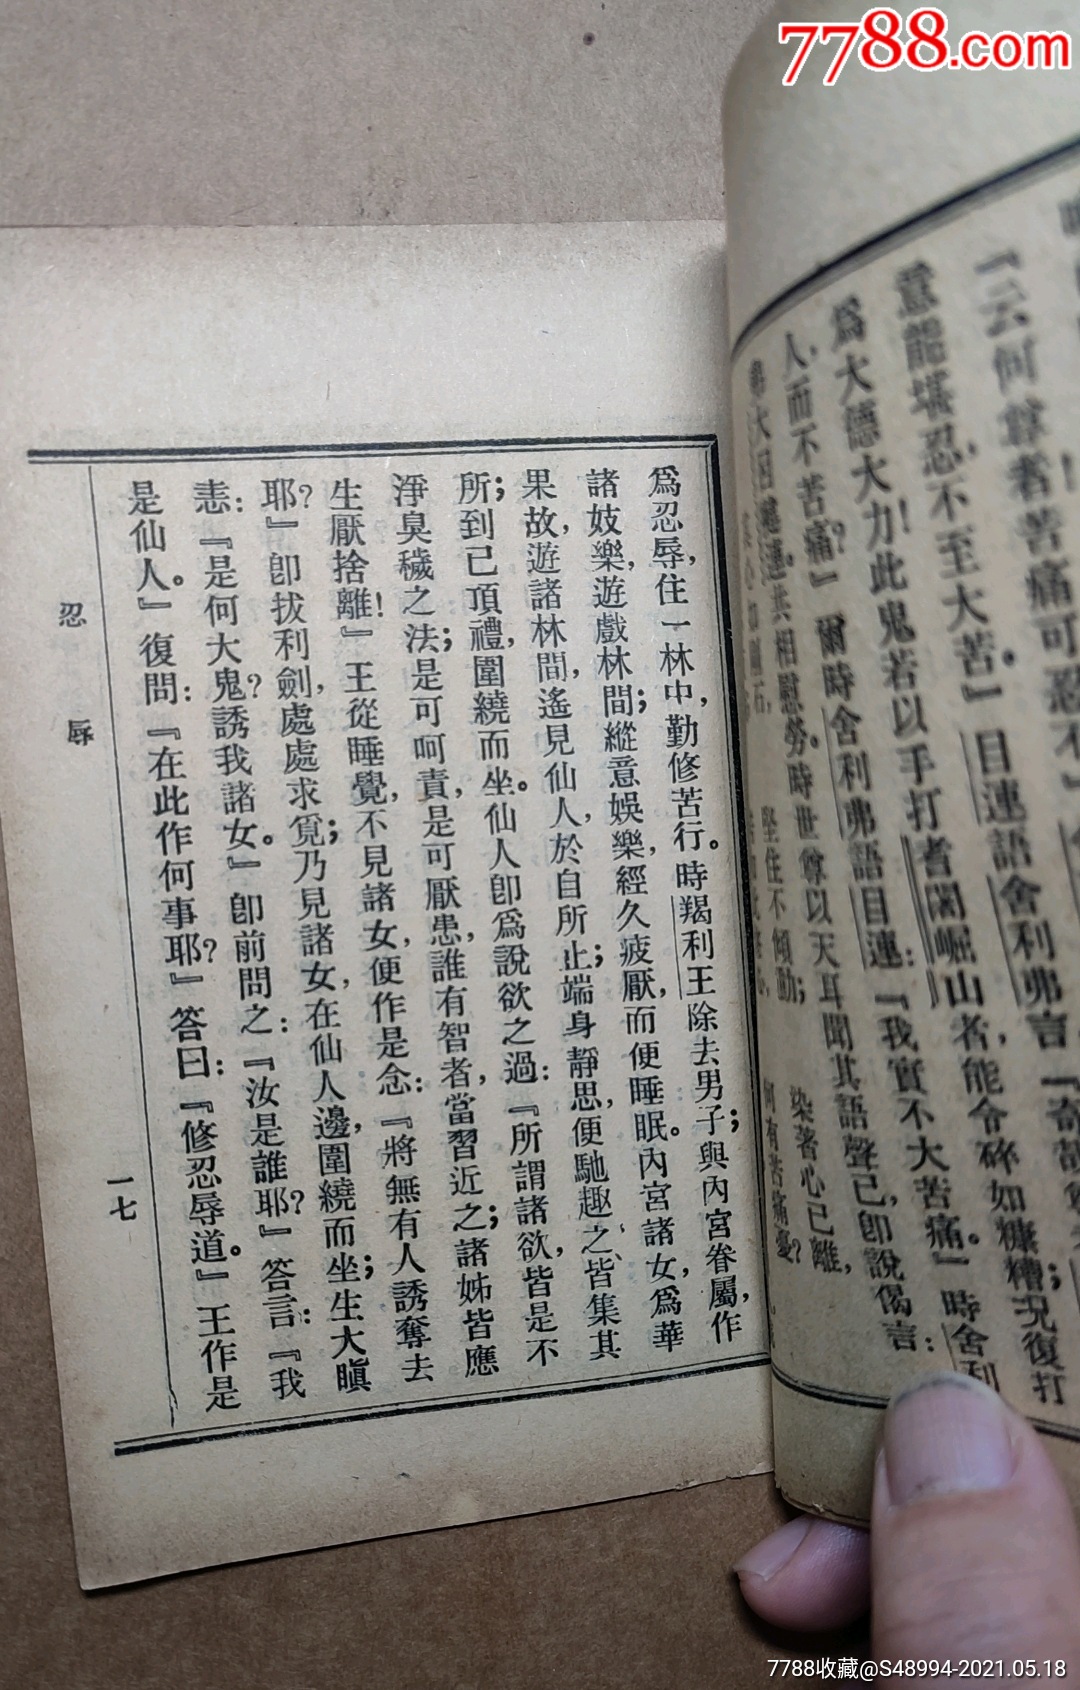 7788.com
『云何尊者苦痛可忍不』
意能堪忍,不至大苦。』目連語舍利弗言『奇
爲大德大力!此鬼若以手打耆闍崛山者,能令碎如糠糟;況復打
人,而不苦痛?』爾時舍利弗語目連:『我實不大苦痛。』時舍利
弗大目揵連,共相慰勞。時世尊以天耳聞其語聲已,卽說偈言:
堅住不傾動;
染著心已離,
何有苦痛憂?
爲忍辱,住一林中,勤修苦行。時羯利王除去男子;與內宮眷屬,作
諸妓樂,遊戲林間;縱意娛樂,經久疲厭,而便睡眠。內宮諸女,爲華
果故,遊諸林間,遙見仙人,於自所止;端身靜思,便馳趣之、皆集其
所;到已頂禮,圍繞而坐。仙人卽爲說欲之過:『所謂諸欲,皆是不
淨臭穢之法;是可呵責,是可厭患,誰有智者,當習近之;諸姊皆應
生厭捨離!』王從睡覺,不見諸女,便作是念:『將無有人誘奪去
耶?』卽拔利劍,處處求覓;乃見諸女,在仙人邊,圍繞而坐;生大瞋
恚:『是何大鬼?誘我諸女。』卽前問之:『汝是誰耶?』答言:『我
是仙人。』復問:『在此作何事耶?』答曰:『修忍辱道。』王作是
忍辱
一七
7788收藏@S48994-2021.05.18